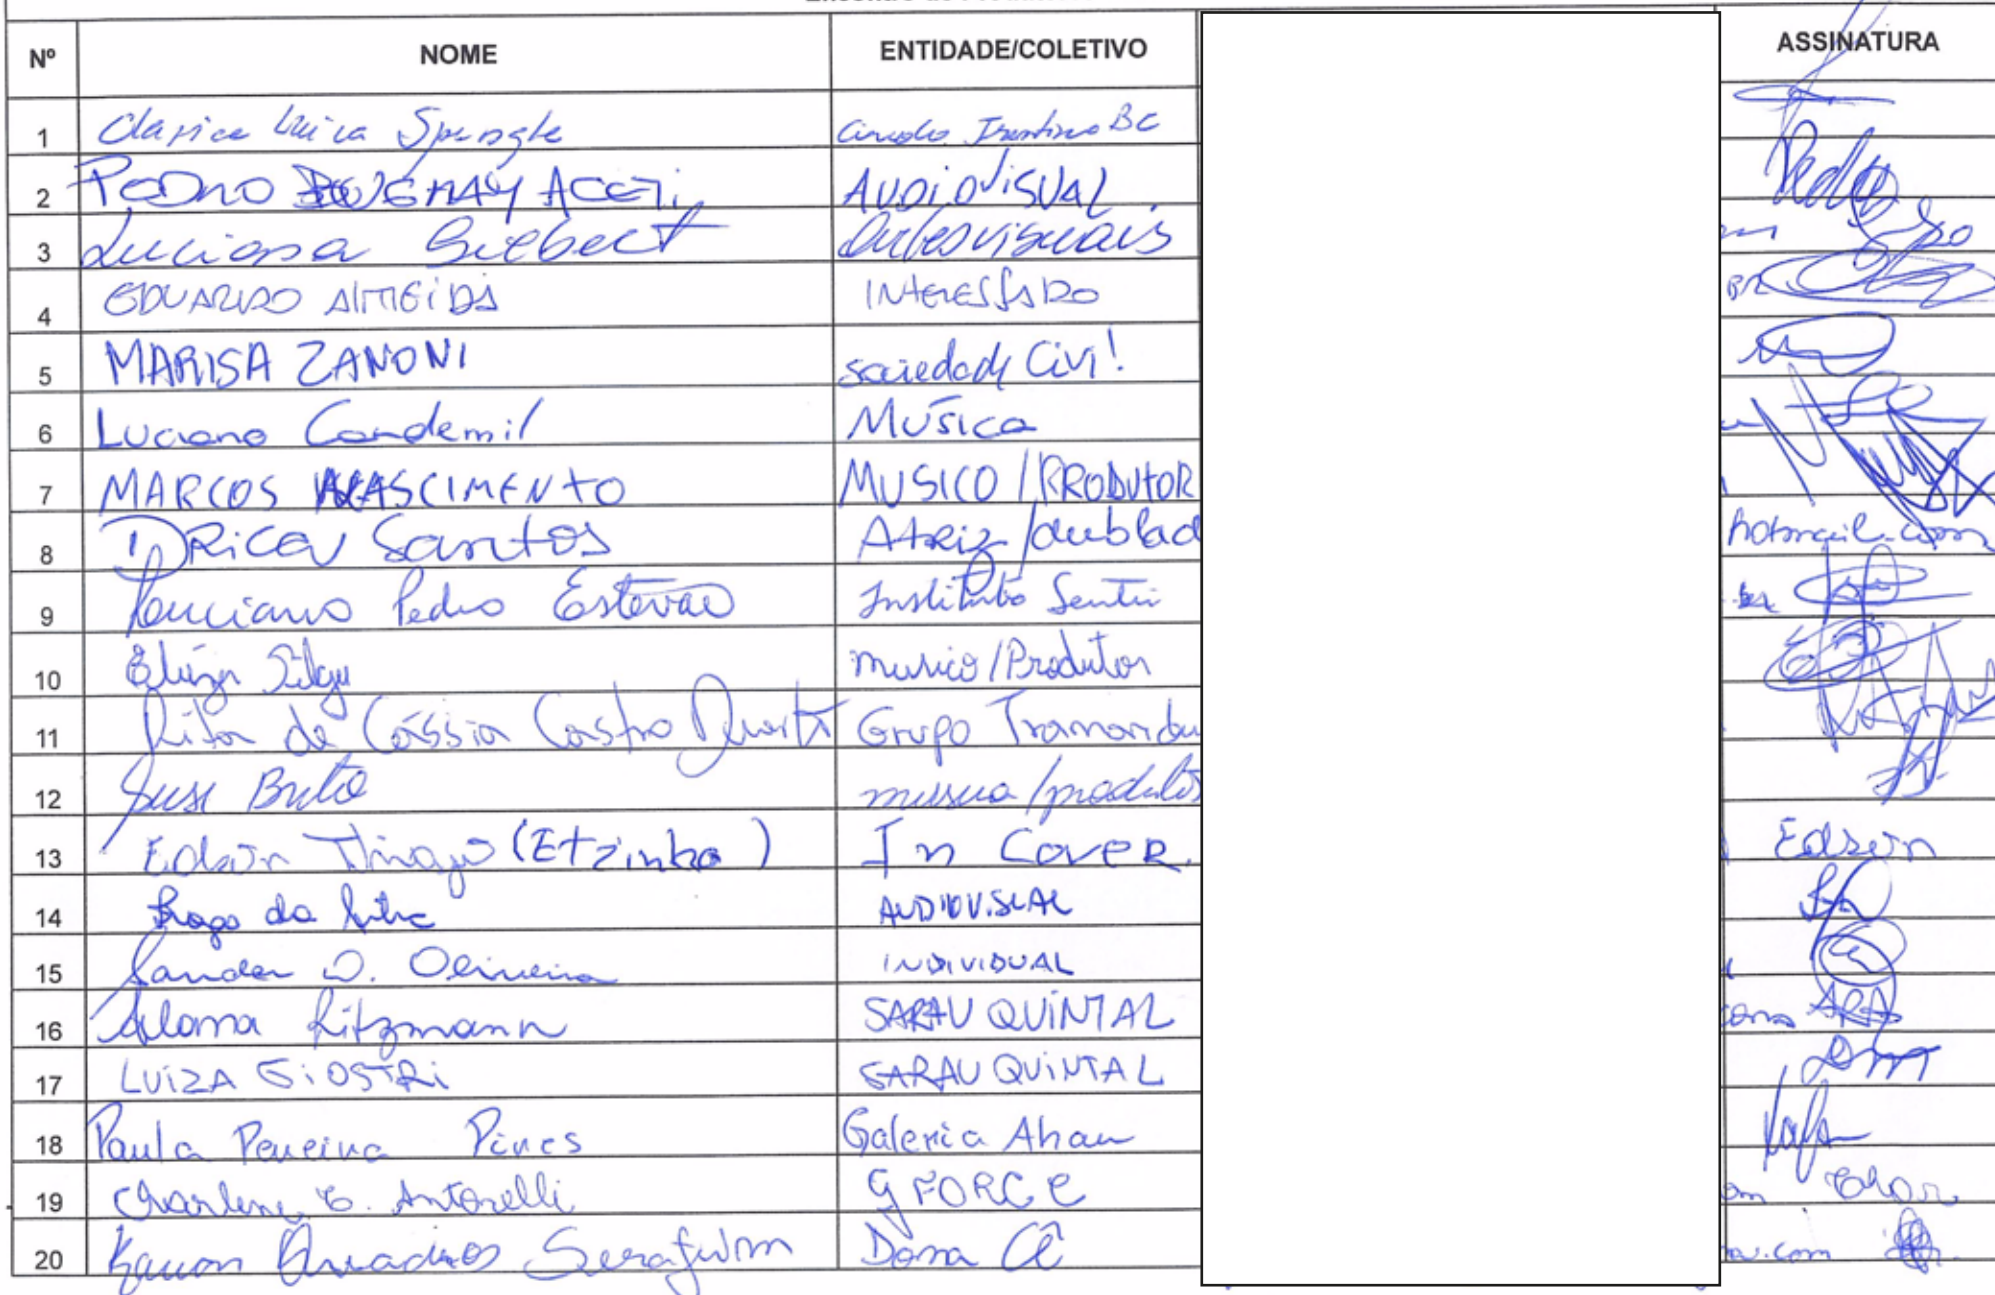 Nº NOME ENTIDADE/COLETIVO ASSINATURA
1 Clarice Circolo Trentino BC
2 Pedro ACETI. AUDIOVISUAL
3 Luciana Siebert Artes visuais
4 EDUARDO AlMEiDA INTERESSADO
5 MARISA ZANONI sociedade Civil
6 Luciano Candemil Música
7 MARCOS NASCIMENTO MUSICO / PRODUTOR
8 DRica Santos Atriz / dublad hotmail.com
9 Luciano Pedro Estevão Instituto Sentir
10 musico / Produtor
11 Rita de Cássia Castro Duarte Grupo
12 Brito
13 Edson Thiago (Etzinho) In Cover. Edson
14 da Silva AUDIOVISUAL
15 Sander D. Oliveira INDIVIDUAL
16 Ritzmann SARAU QUINTAL
17 LUIZA GiOSTRi SARAU QUINTAL
18 Paula Pereira Pires Galeria Ahau
19 Charlene C. Antonelli GFORCE Char
20 Quadros Serafim Dona Cê .com